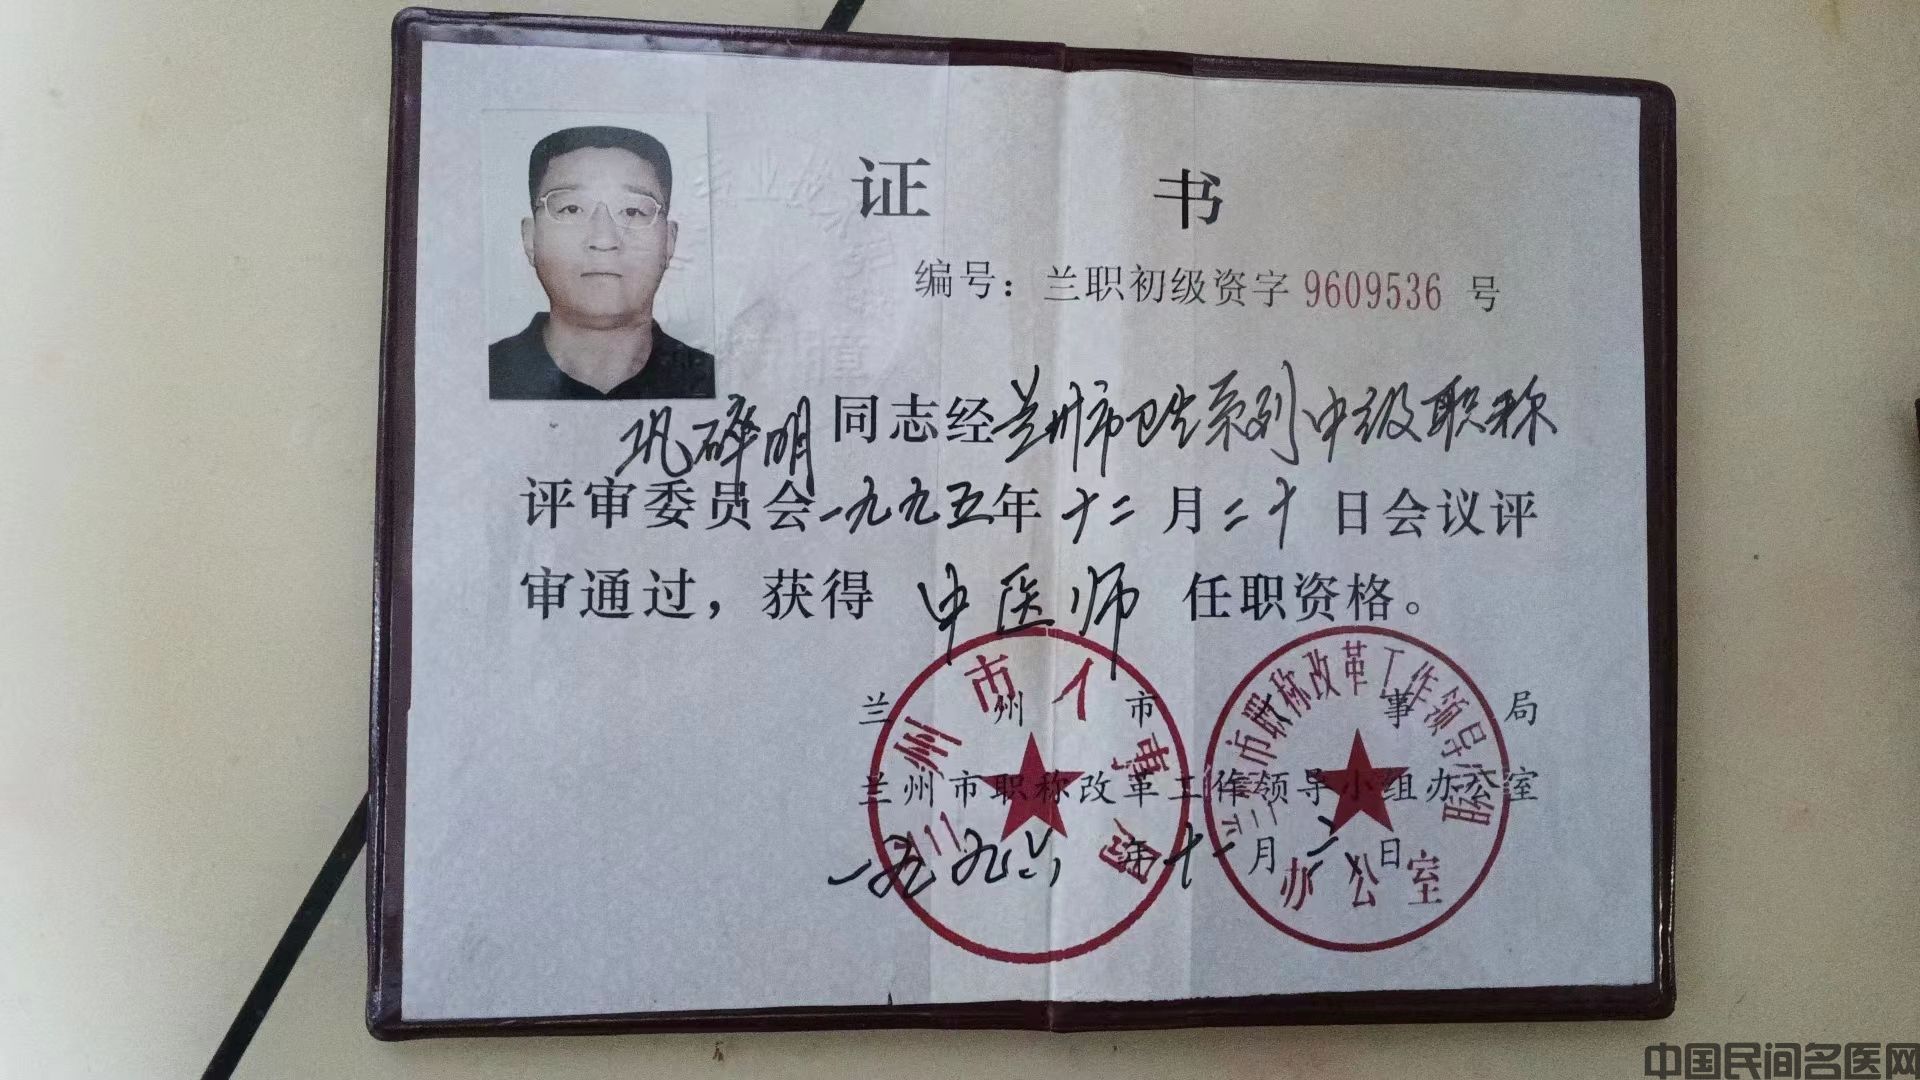 证 书
编号：兰职初级资字 9609536 号
巩碎明同志经兰州市卫生系列中级职称
评审委员会一九九五年十二月二十日会议评
审通过，获得 中医师 任职资格。
兰州市人事局
兰州市职称改革工作领导小组办公室
一九九六年十一月六日
兰州市人事局
市职称改革工作领导小组
办公室
中国民间名医网